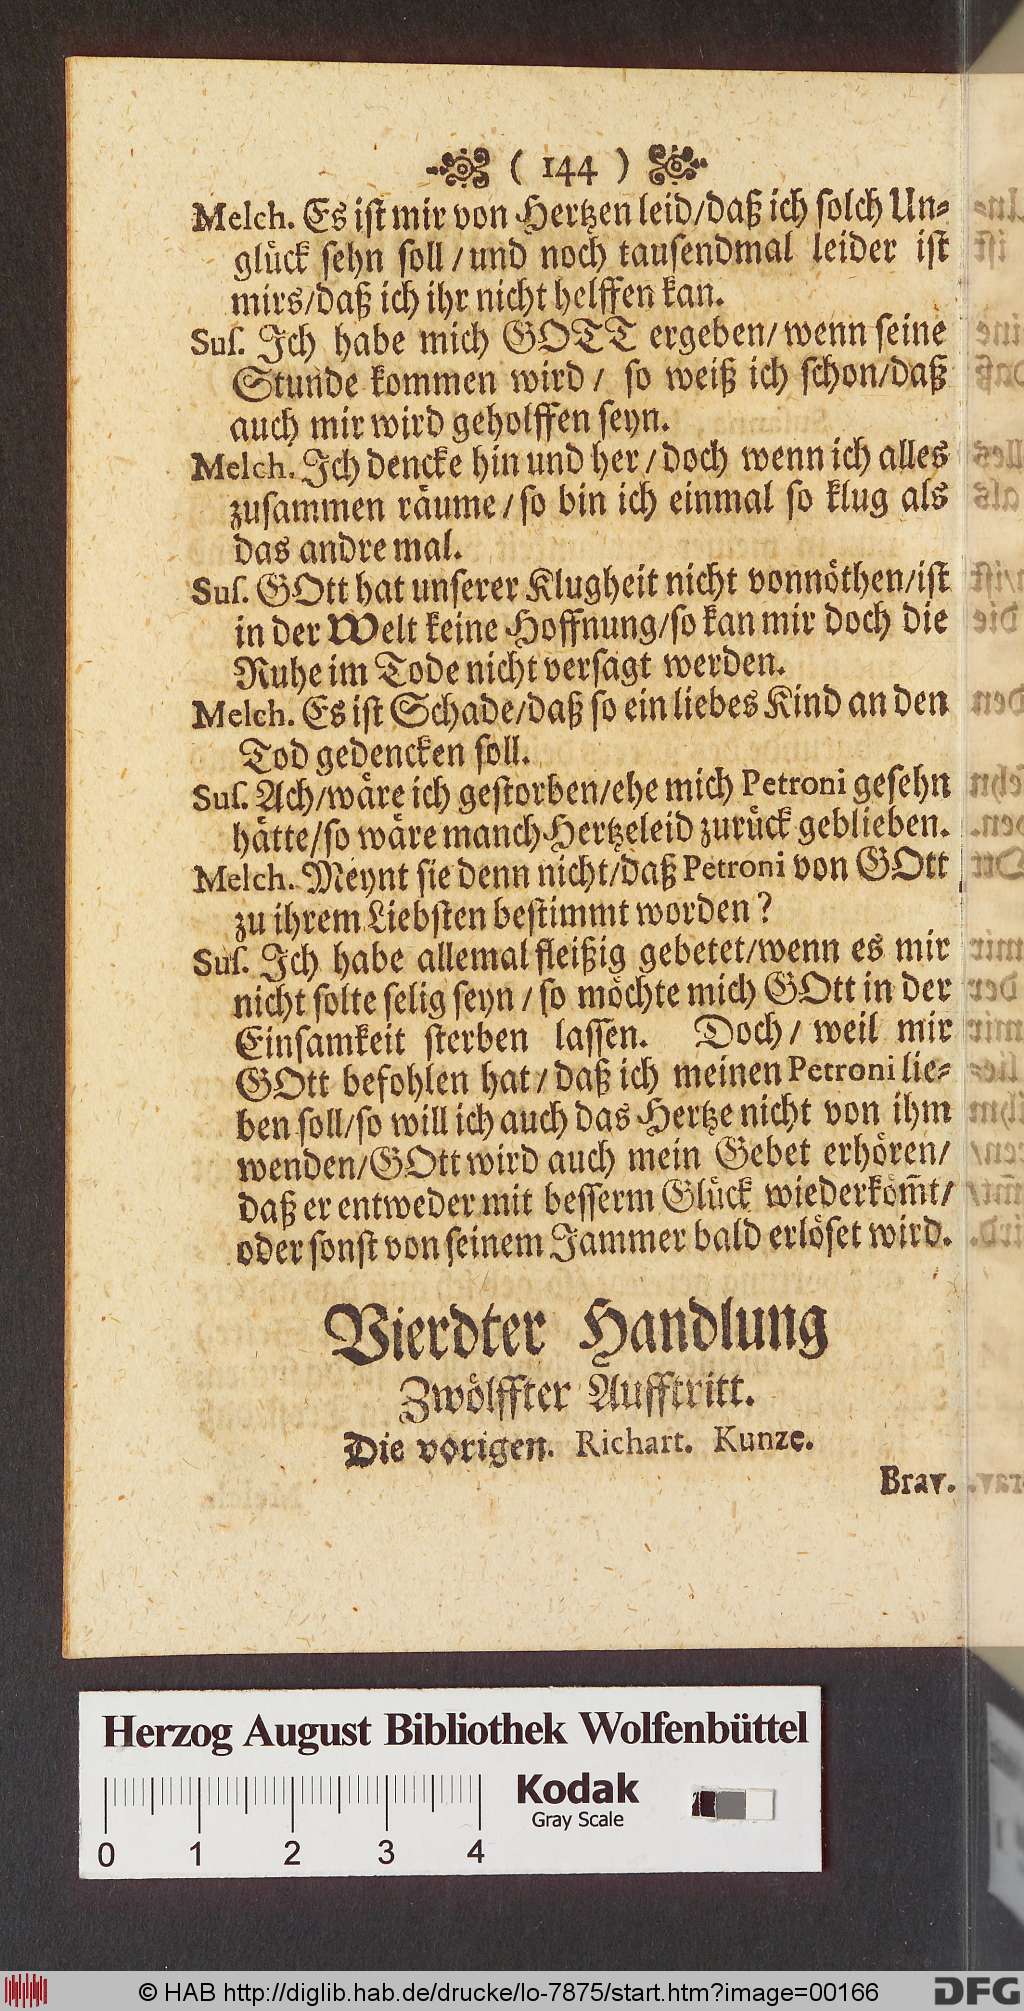 ( 144 )
Melch. Es ist mir von Hertzen leid/daß ich solch Un-
glück sehn soll / und noch tausendmal leider ist
mirs/daß ich ihr nicht helffen kan.
Sus. Ich habe mich GOTT ergeben/ wenn seine
Stunde kommen wird / so weiß ich schon/daß
auch mir wird geholffen seyn.
Melch. Ich dencke hin und her / doch wenn ich alles
zusammen räume / so bin ich einmal so klug als
das andre mal.
Sus. GOtt hat unserer Klugheit nicht vonnöthen/ist
in der Welt keine Hoffnung/so kan mir doch die
Ruhe im Tode nicht versagt werden.
Melch. Es ist Schade/daß so ein liebes Kind an den
Tod gedencken soll.
Sus. Ach/wäre ich gestorben/ehe mich Petroni gesehn
hätte/so wäre manch Hertzeleid zurück geblieben.
Melch. Meynt sie denn nicht/daß Petroni von GOtt
zu ihrem Liebsten bestimmt worden ?
Sus. Ich habe allemal fleißig gebetet/wenn es mir
nicht solte selig seyn / so möchte mich GOtt in der
Einsamkeit sterben lassen. Doch / weil mir
GOtt befohlen hat / daß ich meinen Petroni lie-
ben soll/so will ich auch das Hertze nicht von ihm
wenden/GOtt wird auch mein Gebet erhören/
daß er entweder mit besserm Glück wiederköm̄t/
oder sonst von seinem Jammer bald erlöset wird.
Vierdter Handlung
Zwölffter Aufftritt.
Die vorigen. Richart. Kunze.
Brav.
Herzog August Bibliothek Wolfenbüttel
Kodak
Gray Scale
0 1 2 3 4
© HAB http://diglib.hab.de/drucke/lo-7875/start.htm?image=00166
DFG